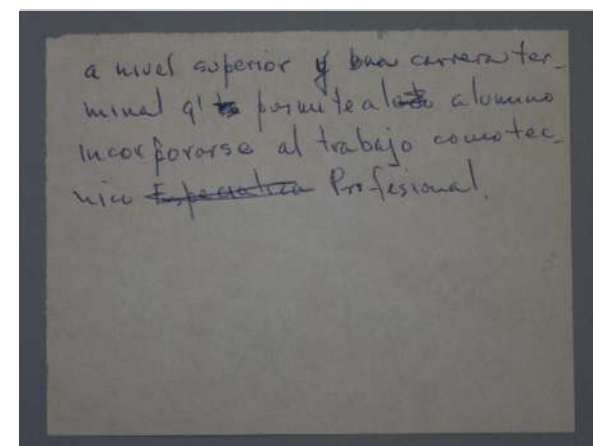 a nivel superior y una carrera ter-
minal q' permite al alumno
incorporarse al trabajo como tec-
nico Especialica Profesional.